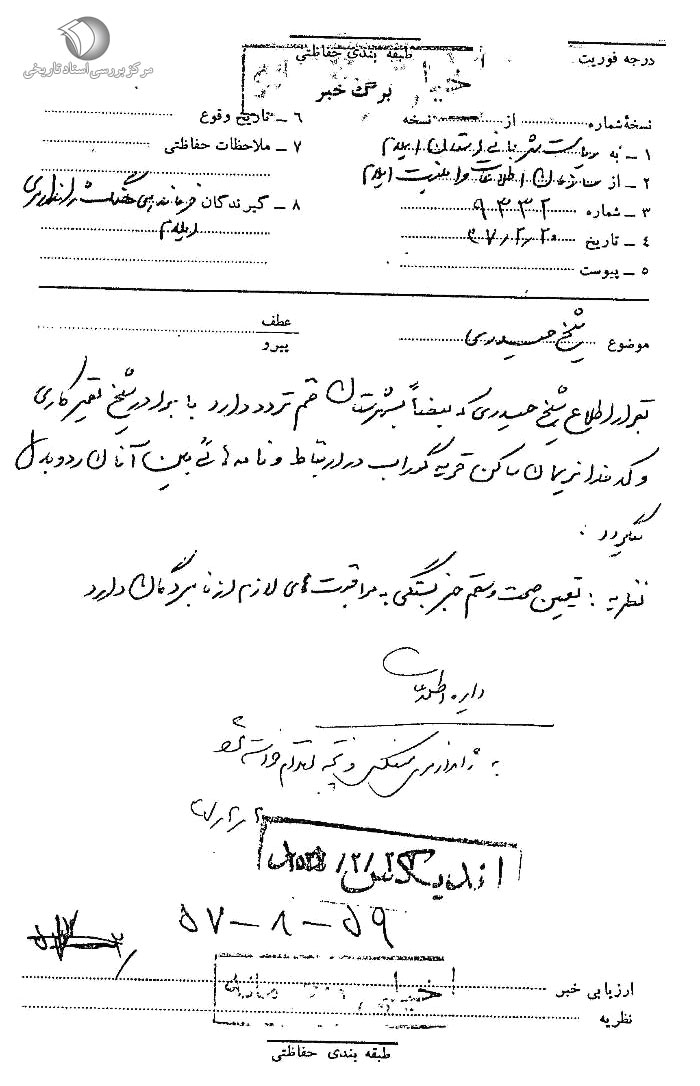 مرکز بررسی اسناد تاریخی
درجه فوریت
طبقه بندی حفاظتی
برگ خبر
نسخهٔ شماره از نسخه
۱ ـ به ریاست شهربانی استان ایلام
۲ ـ از سازمان اطلاعات و امنیت ایلام
۳ ـ شماره ۹۳۳۲
۴ ـ تاریخ ۳۷/۲/۲۰
۵ ـ پیوست
۶ ـ تاریخ وقوع
۷ ـ ملاحظات حفاظتی
۸ ـ گیرندگان فرماندهی هنگ ژاندارمری ایلام
موضوع شیخ حیدری
عطف
پیرو
بقرار اطلاع شیخ حیدری که بعضاً بشهرستان قم تردد دارد با برادر شیخ
و کدخدا نریمان ساکن قریه گوراب در ارتباط و نامه هائی بین آنان رد و بدل
میگردد .
نظریه : تعیین صحت و سقم خبر بستگی به مراقبت های لازم از نامبردگان دارد
دایره اطلاعات
به ژاندارمری منعکس و نتیجه اقدام خواسته شود
۵۷-۸-۵۹
ارزیابی خبر
نظریه
طبقه بندی حفاظتی